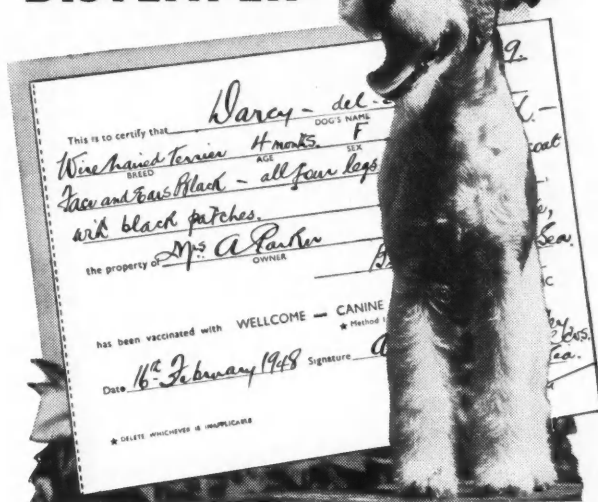 DISTEMPER
9.
This is to certify that Darcy - del -
DOG'S NAME
Wire haired Terrier 4 months. F
BREED AGE SEX
coat
Face and Ears Black - all four legs
with black patches.
the property of Mrs A Parker
OWNER
Sea.
has been vaccinated with WELLCOME — CANINE
★ Method
Date 16th February 1948 Signature
★ DELETE WHICHEVER IS INAPPLICABLE